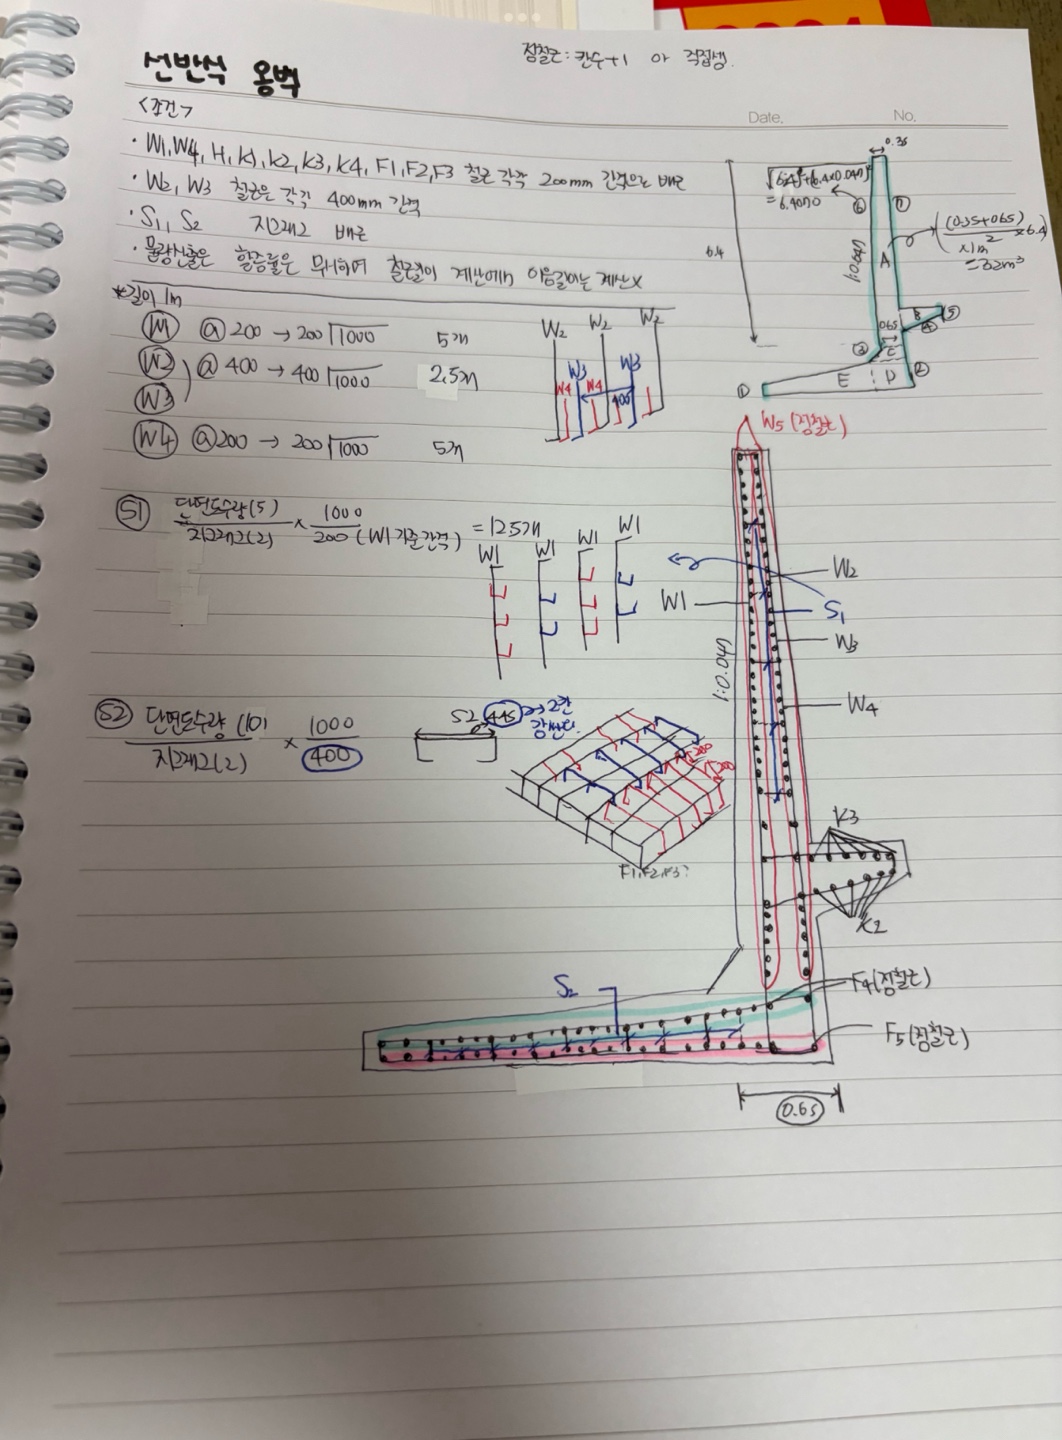 점철근 : 칸수+1 or 직접셈.
선반식 옹벽
Date. No.
<조건>
· W1, W4, H, K1, K2, K3, K4, F1, F2, F3 철근 각각 200mm 간격으로 배근
· W2, W3 철근은 각각 400mm 간격
· S1, S2 지그재그 배근
· 물량산출은 할증률은 무시하며 철근길이 계산에서 이음길이는 계산X
0.35
= 6.4070
6.4
1:0.047
A
(0.35+0.65)/2 × 6.4
×1m
=3.2m³
0.65
B
C
E D
① ② ③ ④ ⑤ ⑥ ⑦
*길이 1m
W1 @200 → 200 1000 5개
W2
W3
@400 → 400 1000 2.5개
W4 @200 → 200 1000 5개
W2 W2 W2
W3 W3
W4 W4 400
W5 (점철근)
S1 단면도수량(5)/지그재그(2) × 1000/200 (W1 기준간격) = 12.5개
W1 W1 W1 W1
W1
W2
S1
W3
W4
1:0.047
S2 단면도수량(10)/지그재그(2) × 1000/400
S2 445 → 2칸
200
F1, F2, F3?
K3
K2
S2
F4(점철근)
F5(점철근)
0.65